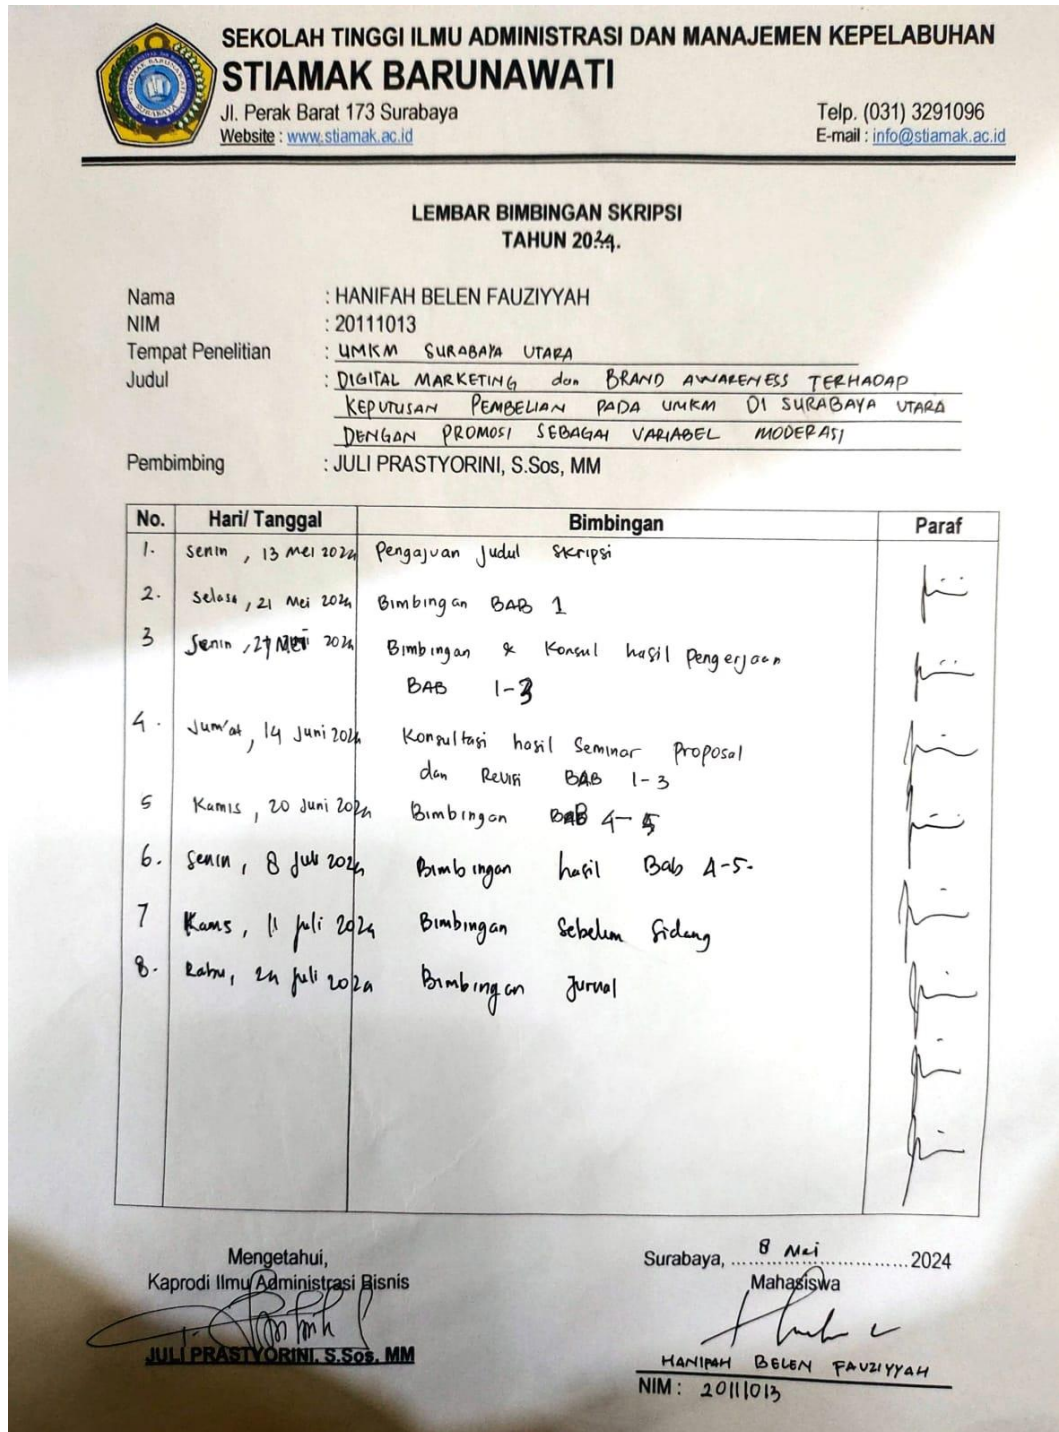 SEKOLAH TINGGI ILMU ADMINISTRASI DAN MANAJEMEN KEPELABUHAN
STIAMAK BARUNAWATI
Jl. Perak Barat 173 Surabaya
Telp. (031) 3291096
Website : www.stiamak.ac.id
E-mail : info@stiamak.ac.id
LEMBAR BIMBINGAN SKRIPSI
TAHUN 2024.
Nama : HANIFAH BELEN FAUZIYYAH
NIM : 20111013
Tempat Penelitian : UMKM SURABAYA UTARA
Judul : DIGITAL MARKETING dan BRAND AWARENESS TERHADAP
KEPUTUSAN PEMBELIAN PADA UMKM DI SURABAYA UTARA
DENGAN PROMOSI SEBAGAI VARIABEL MODERASI
Pembimbing : JULI PRASTYORINI, S.Sos, MM
No. Hari/ Tanggal Bimbingan Paraf
1. Senin , 13 Mei 2024 Pengajuan Judul Skripsi
2. Selasa , 21 Mei 2024 Bimbingan BAB 1
3 Senin , 27 Mei 2024 Bimbingan & Konsul hasil Pengerjaan
BAB 1-3
4. Jum'at , 14 Juni 2024 Konsultasi hasil Seminar Proposal
dan Revisi BAB 1-3
5 Kamis , 20 Juni 2024 Bimbingan BAB 4-5
6. Senin , 8 Juli 2024 Bimbingan hasil Bab 4-5.
7 Kams , 11 Juli 2024 Bimbingan Sebelum Sidang
8. Rabu, 24 Juli 2024 Bimbingan Jurnal
Mengetahui,
Kaprodi Ilmu Administrasi Bisnis
JULI PRASTYORINI, S.Sos, MM
Surabaya, 8 Mei 2024
Mahasiswa
HANIFAH BELEN FAUZIYYAH
NIM : 20111013